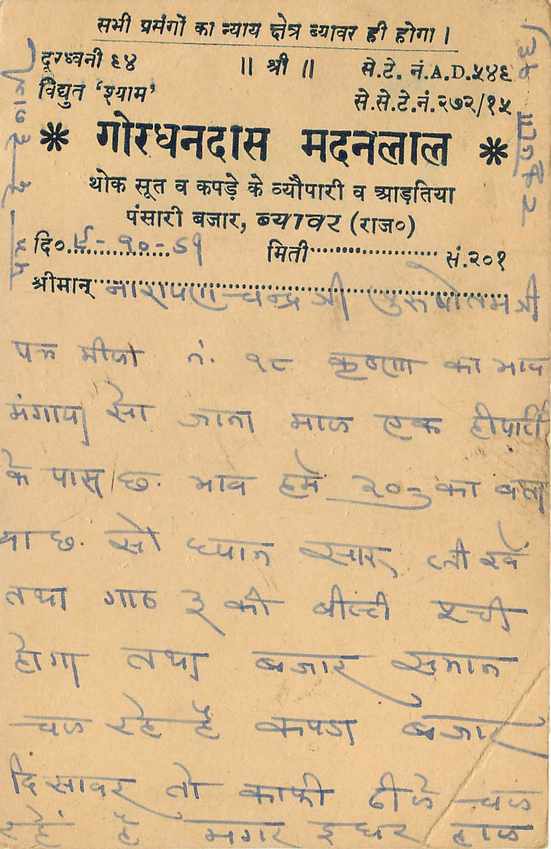 सभी प्रसंगों का न्याय क्षेत्र ब्यावर ही होगा।
दूरध्वनी ६४
॥ श्री ॥
से.टे. नं.A.D.५४६
विद्युत 'श्याम'
से.से.टे.नं.२७२/१५
* गोरधनदास मदनलाल *
थोक सूत व कपड़े के व्यौपारी व आड़तिया
पंसारी बजार, ब्यावर (राज०)
दि०. ९-१०-५१ मिती सं.२०१
श्रीमान् नारायण चन्द्र जी पुरुषोतम जी
पत्र मीला नं. १८ कृष्णा का भाव
मंगाया सो जाना माल एक ही पार्टी
के पास छ. भाव हमे २०३ का बता
या छ. सो ध्यान रखे
तथा गाठ ३ की बील्टी
होगा तथा बजार समान
चल रहे है कपडा बजार
दिसावर तो काफी ढीले चल
रहे है मगर इधर हाल